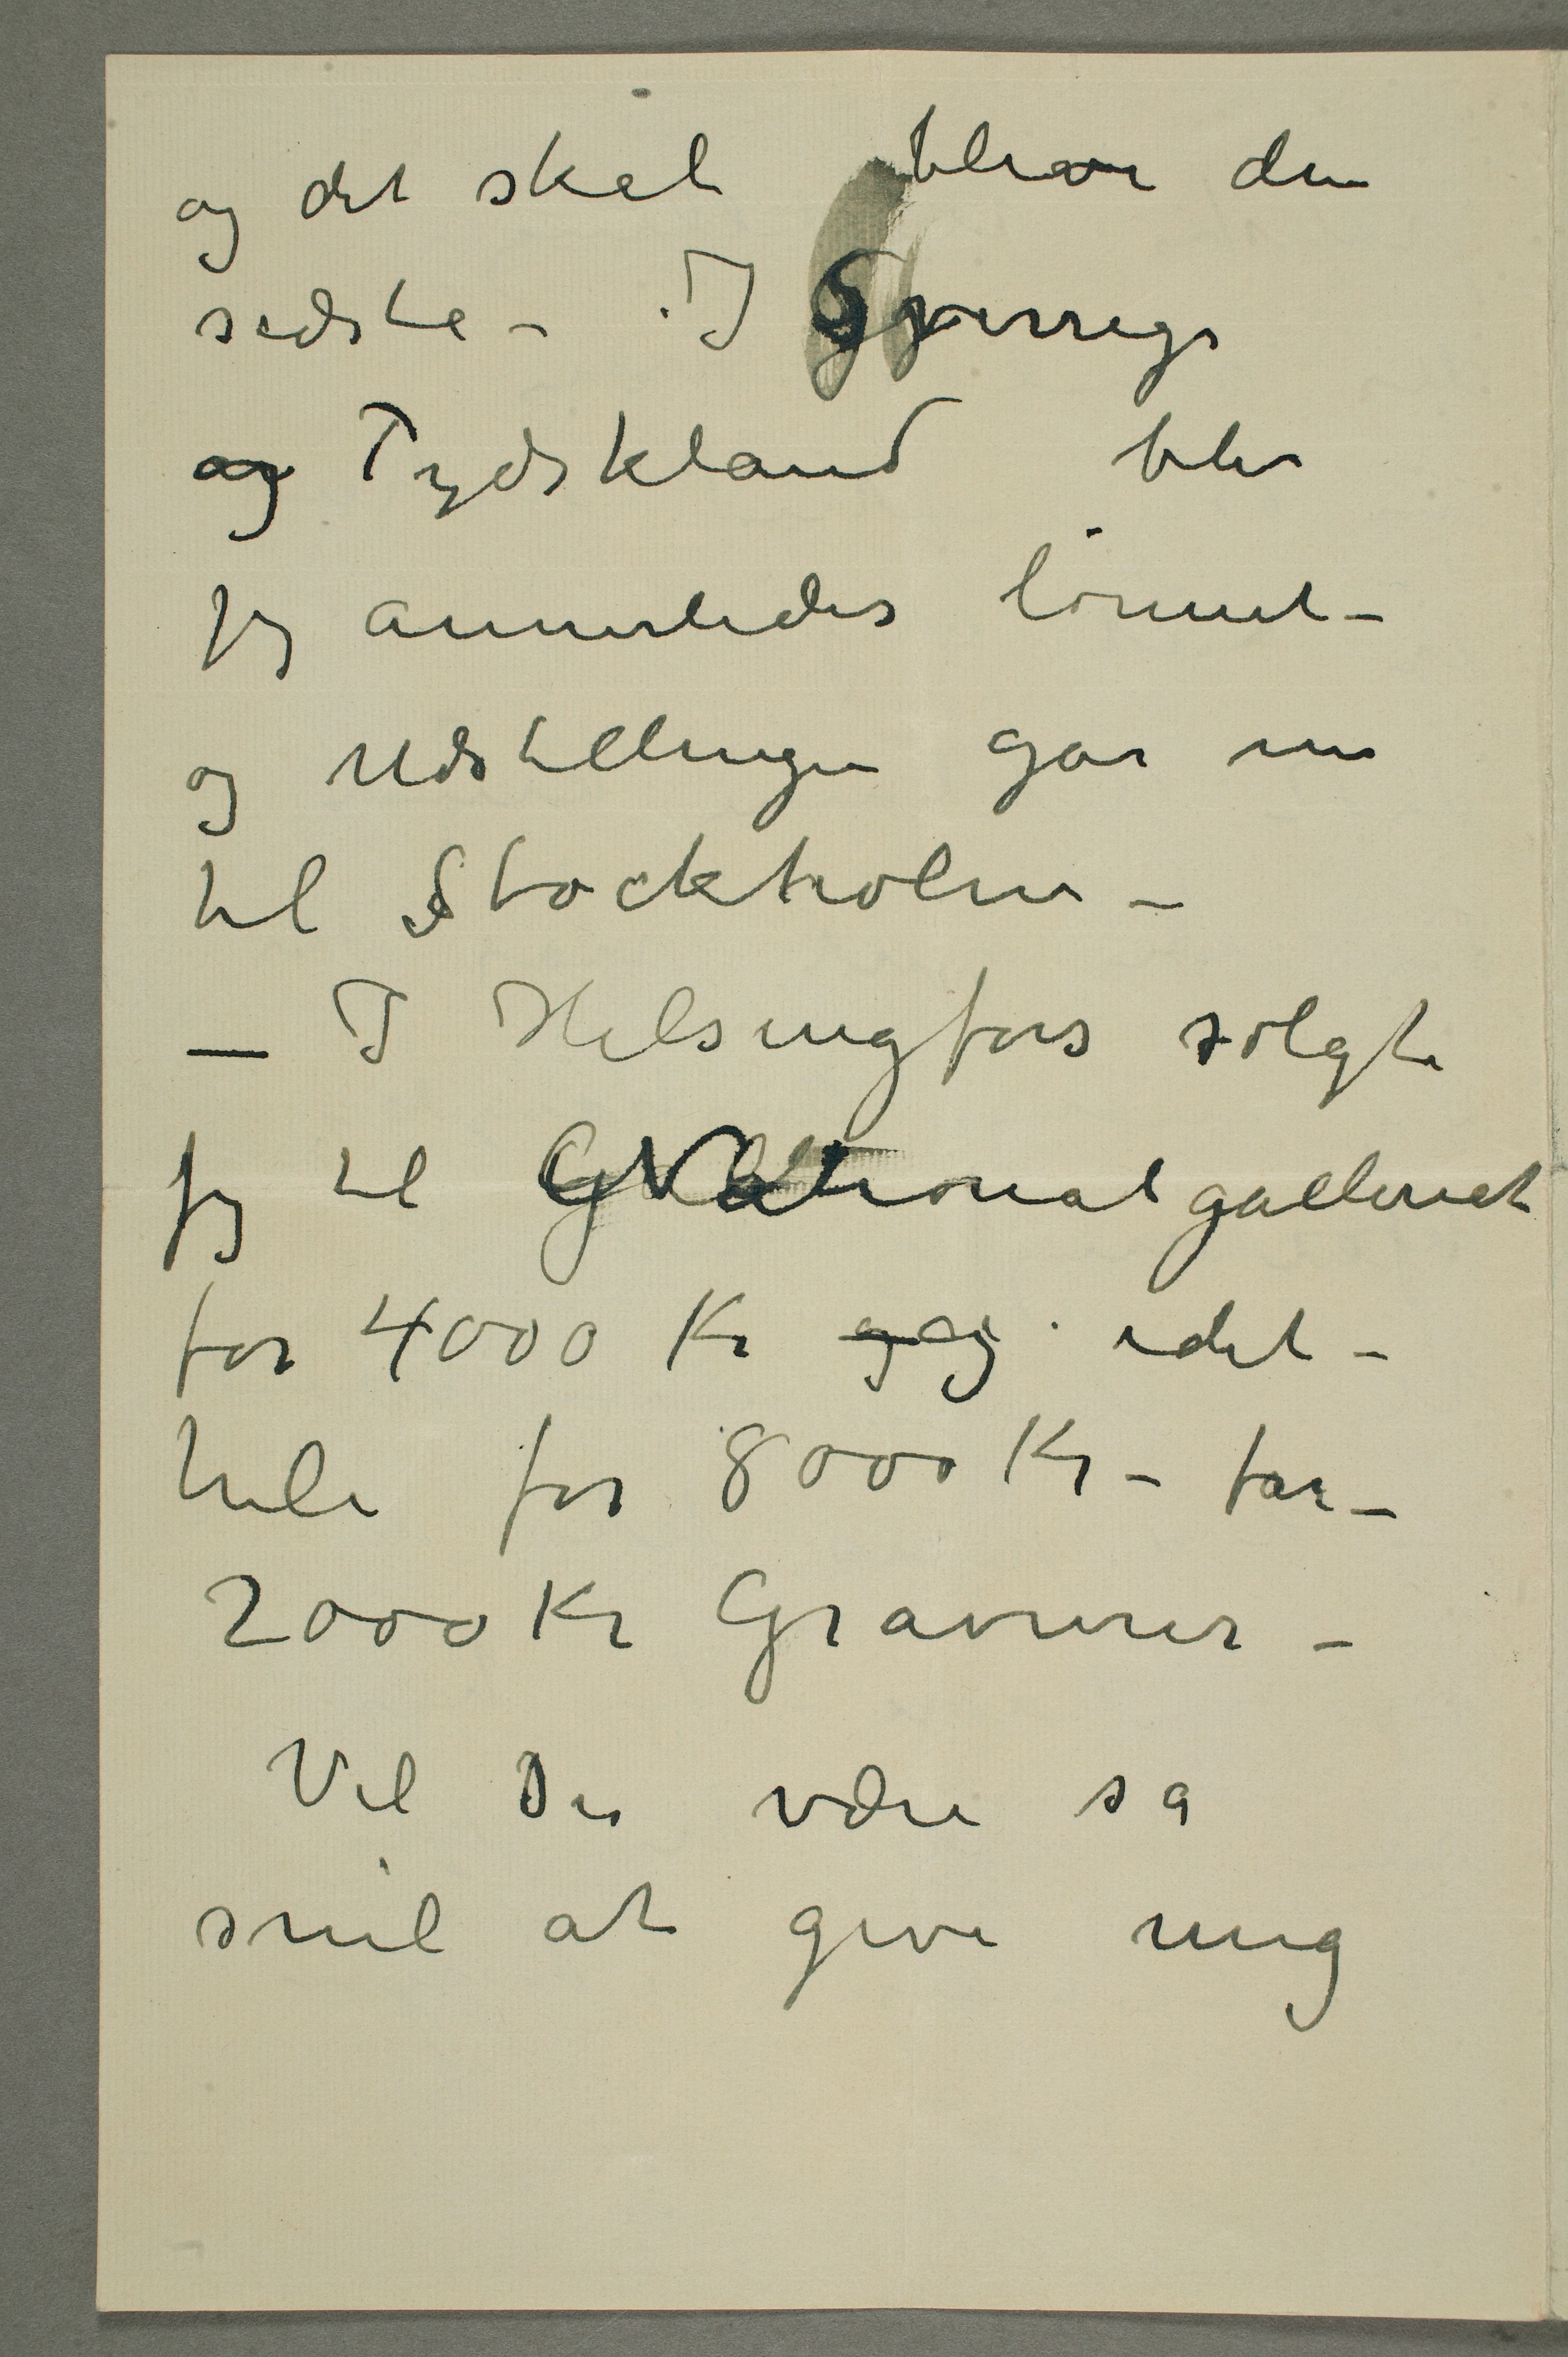 og det skal blive den
sidste – I Sverrige
og Tydskland blir
jeg annerledes lönnet –
og Udstillingen går nu
til Stockholm –
– I Helsingfors solgte
jeg til Nationalgalleriet
for 4000 Kr og idet –
hele for 8000 Kr – før –
2000 Kr Gravurer –
Vil De være så
snil at give mig